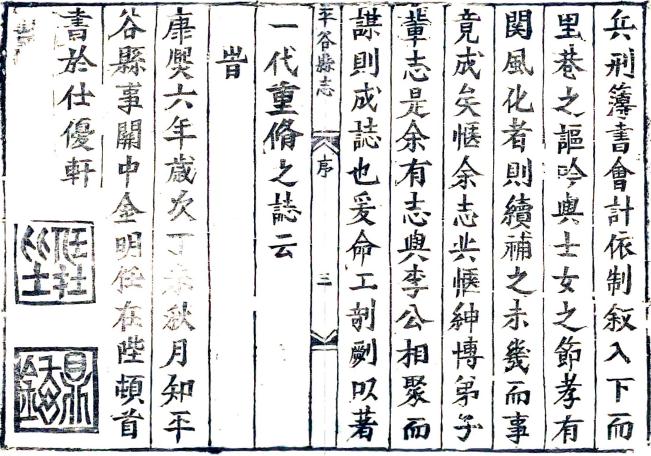 兵刑簿書會計依制叙入下而
里巷之謳吟與士女之節孝有
関風化者則續補之未幾而事
竟成矣愜余志共愜紳愽弟子
輩志是余有志與李公相聚而
謀則成誌也爰命工剞劂以著
平谷縣志 序 三
一代重脩之誌云
旹
康熙六年歲次丁未秋月知平
谷縣事關中金明任在陛頓首
書於仕優軒